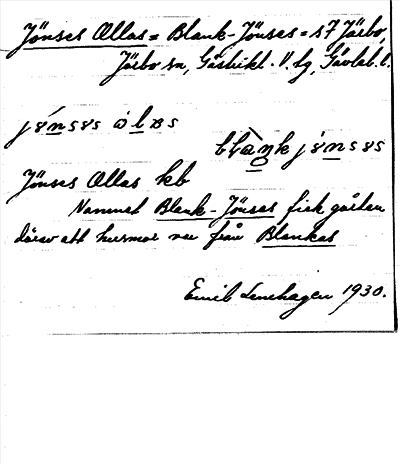 Jönses Ollas = Blank-Jönses = s7 Järbo,
Järbo sn, Gästrikl. V. tg, Gävleb. l.
jö́nsɘs òlas
blàŋk jö́nsɘs
Jönses Ollas kb
Namnet Blank-Jönses fick gården
därav att husmor var från Blankas
Emil Lenhagen 1930.